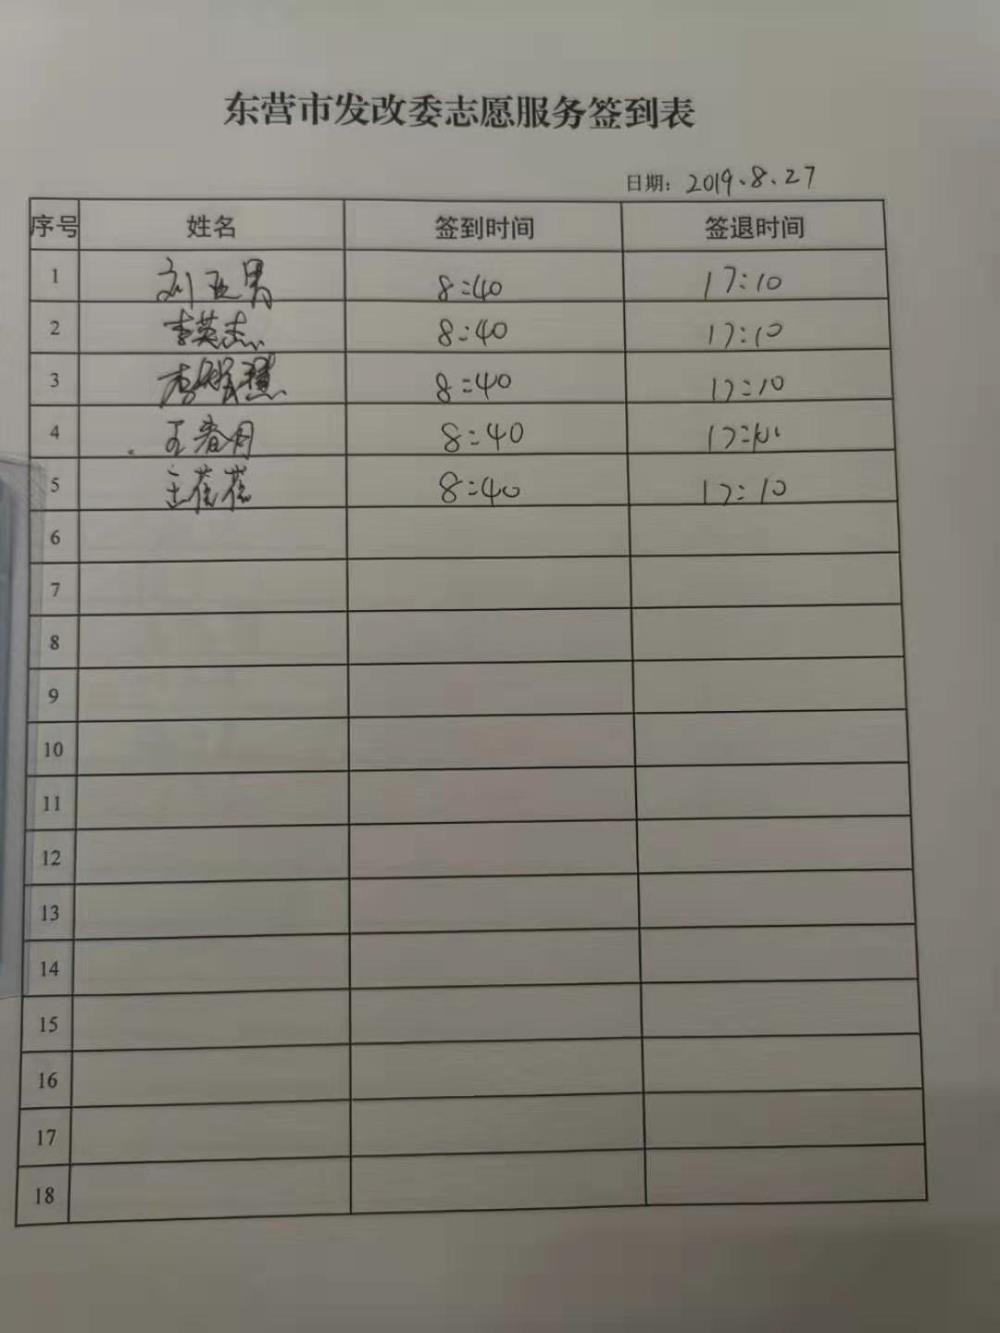 东营市发改委志愿服务签到表
日期: 2019.8.27
序号 姓名 签到时间 签退时间
1 刘亚男 8:40 17:10
2 李英杰 8:40 17:10
3 8:40 17:10
4 王春月 8:40
5 王蓓蓓 8:40 17:10
6
7
8
9
10
11
12
13
14
15
16
17
18